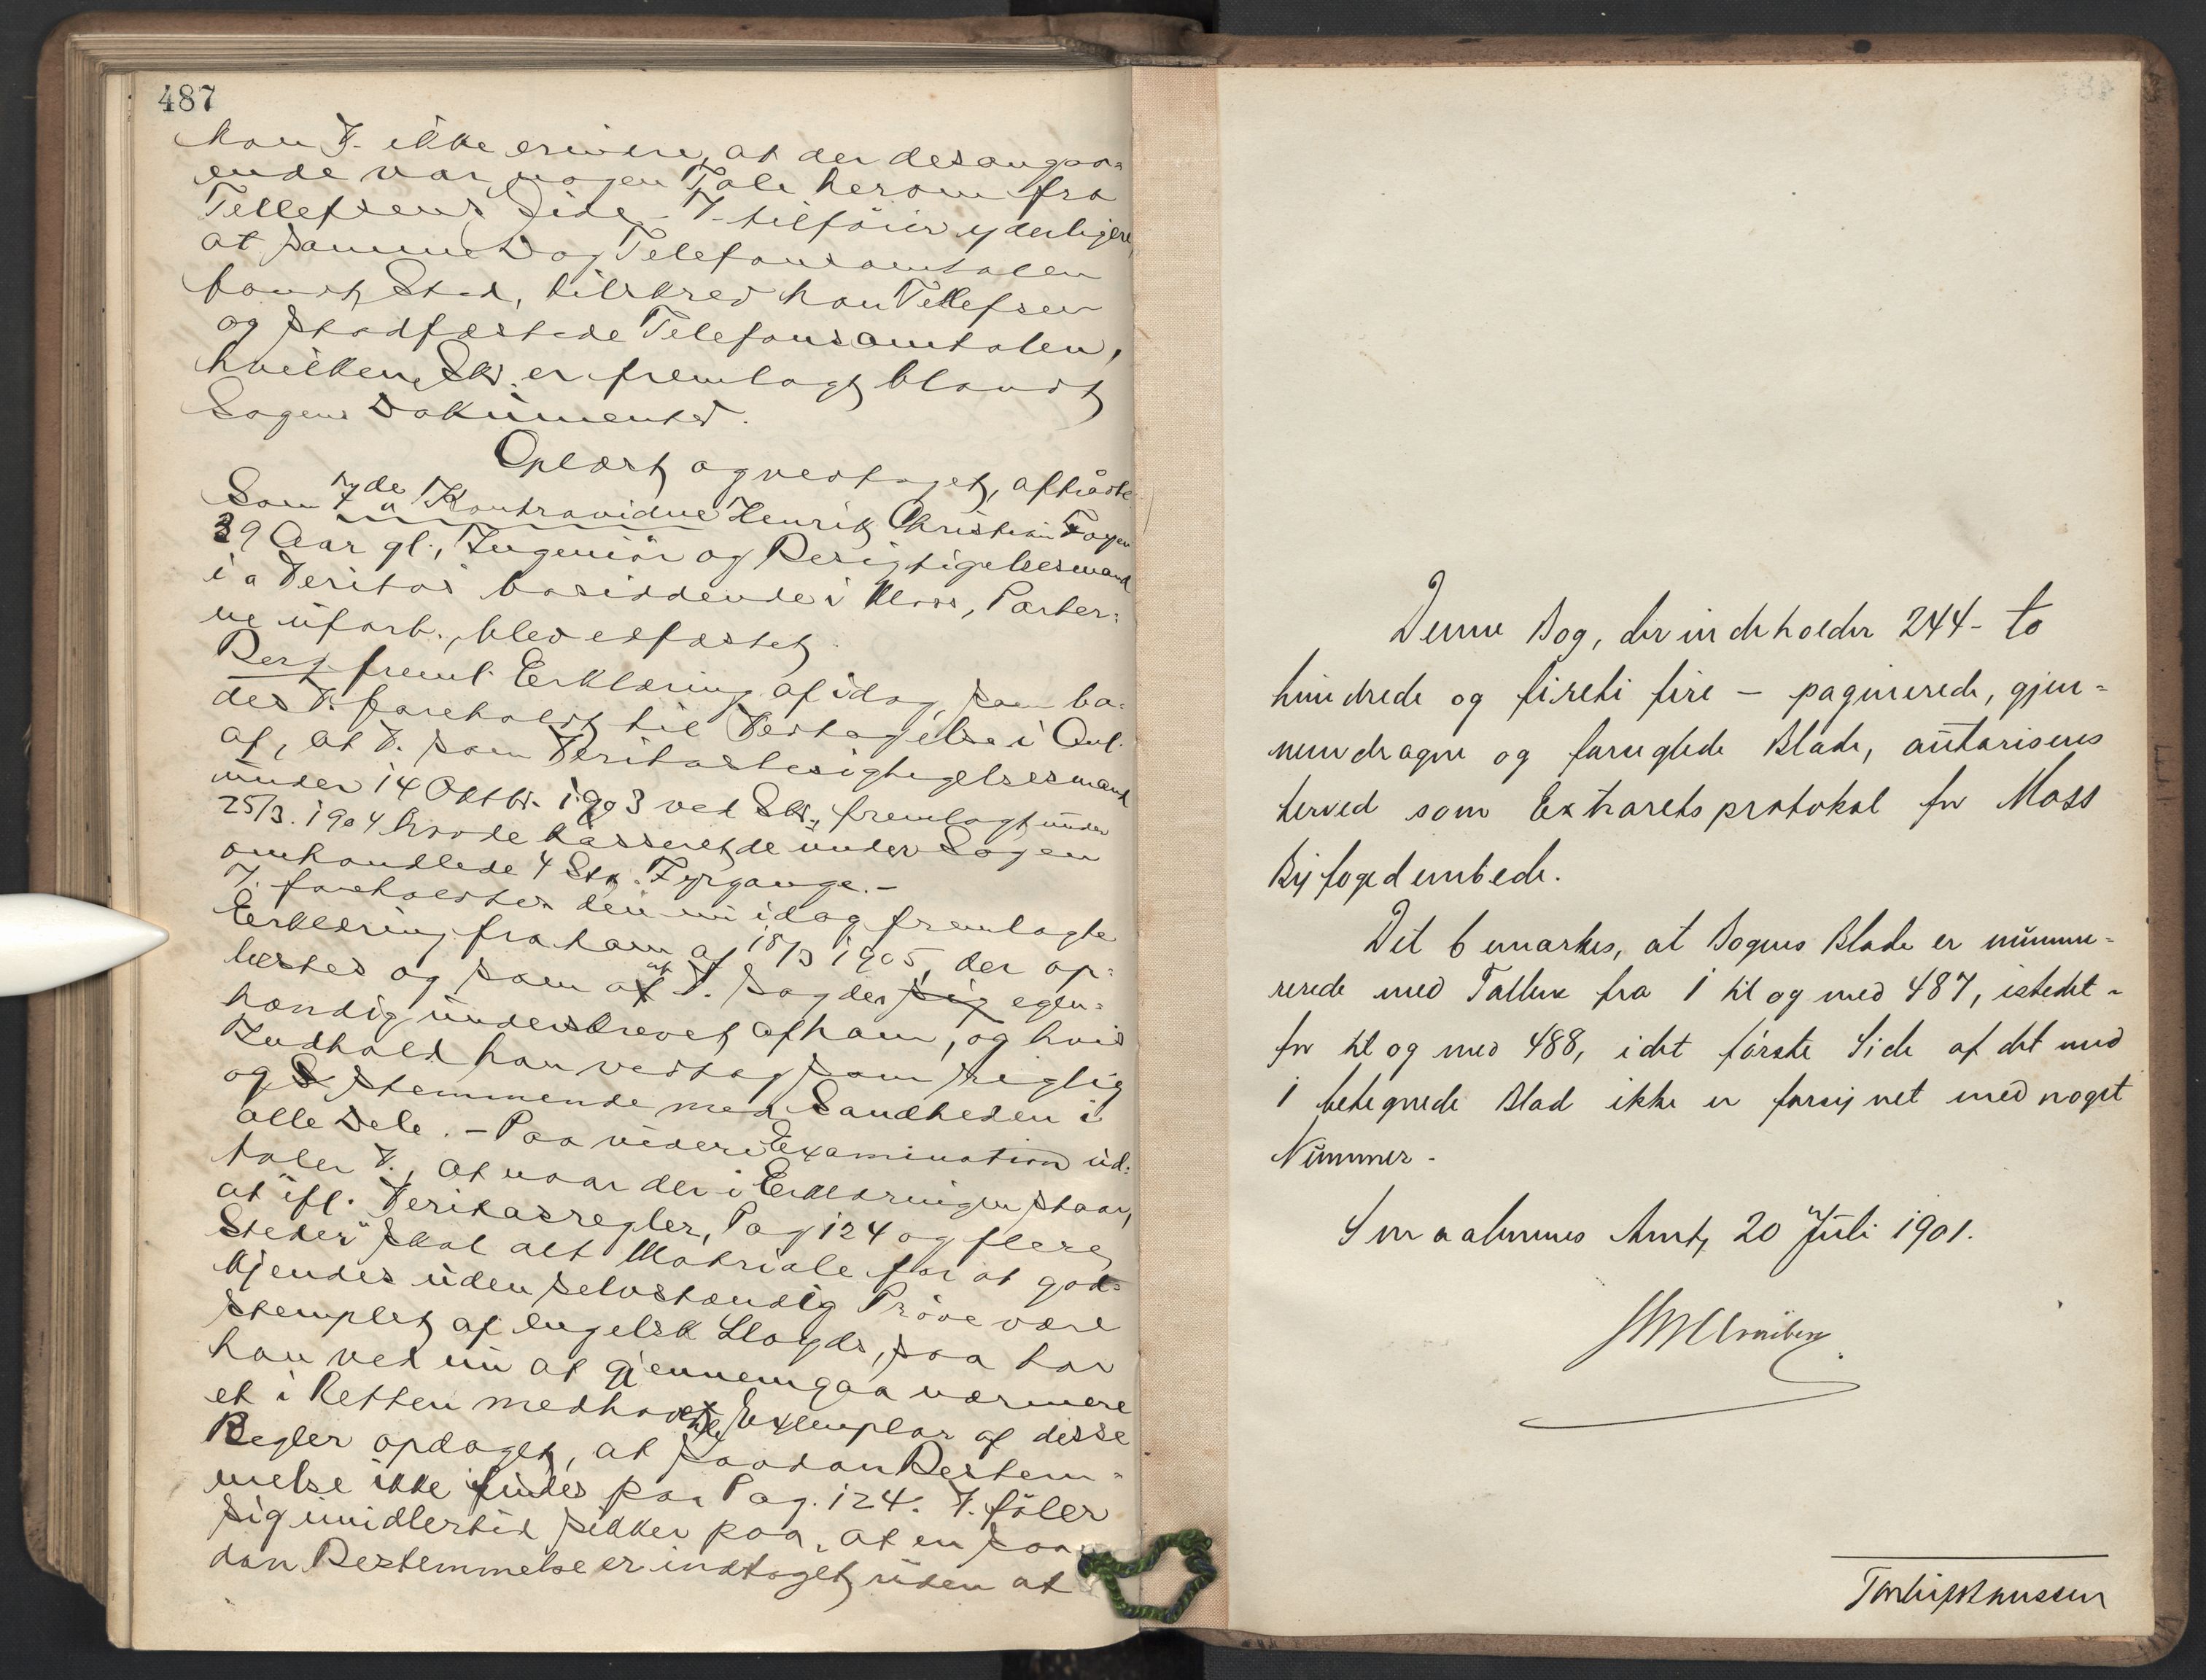 487
kan V. ikke erindre, at der desangaa=
ende var nogen Tale herom fra
Tellefsens Side. V. tilföier yderligere,
at samme Dag Telefonsamtalen
fandt Sted, tilskrev han Tellefsen
og stadfæstede Telefonsamtalen,
hvilken Skr. er fremlagt blandt
Sagens Dokumenter.
Oplæst og vedtaget, aftraadte
Som 7de Kontravidne Henrik Christian
39 Aar gl., Ingeniör og Besigtigelsesmand
i Veritas bosiddende i Moss, Parter=
ne uforb., blev edfæstet
Ber. freml. Erklæring af idag, som ba=
des V. foreholdt til Vedtagelse i Anl.
af, at V. som Veritasbesigtigelsesmand
under 14 Oktbr. 1903 ved Skr., fremlagt under
25/3. 1904 havde kasseret de under Sagen
omhandlede 4 Stk. Fyrgange. -
V. foreholdtes den nu idag fremlagte
Erklæring fra ham af 18/3 1905, der op=
læstes og som af V. sagdes sig egen=
hændig underskrevet af ham, og hvis
Indhold han vedtog som rigtig
og stemmende med Sandheden i
alle Dele. - Paa videre Examination ud=
taler V., at naar der i Erklæringen staar,
at "ifl. Veritasregler, Pag 124 og flere
Steder" skal alt Matriale for at god=
kjendes uden selvstændig Pröve være
stemplet af engelsk Lloyds, saa har
han ved nu at gjennemgaa nærmere
et i Retten medhavde Exemplar af disse
Regler opdaget, at saadan Bestem=
melse ikke findes paa Pag. 124. V. föler
sig imidlertid sikker paa, at en saa=
dan Bestemmelse er indtaget uden at
Denne Bog, der indeholder 244 - to
hundrede og fireti fire - paginerede, gjen=
nemdragne og forseglede Blade, autoriseres
herved som Extraretsprotokol for Moss
Byfogedembede.
Det bemærkes, at Bogens Blade er numme=
rerede med Tallene fra 1 til og med 487, istedet-
for til og med 488, idet förste Side af det med
1 betegnede Blad ikke er forsynet med noget
Nummer.
Smaalenenes Amt, 20 Juli 1901.